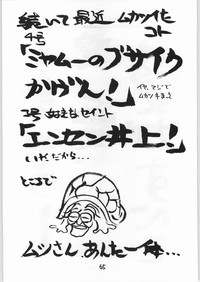 続いて最近 ムカツイた
コト
4号
「ミャムーのブサイク
かげん!」
イヤ、マジで
ムカツキまっせ
2号 好きなセイント
「エンセン井上!」
いれくだから…
ところで
ムシさん、あんた一体…